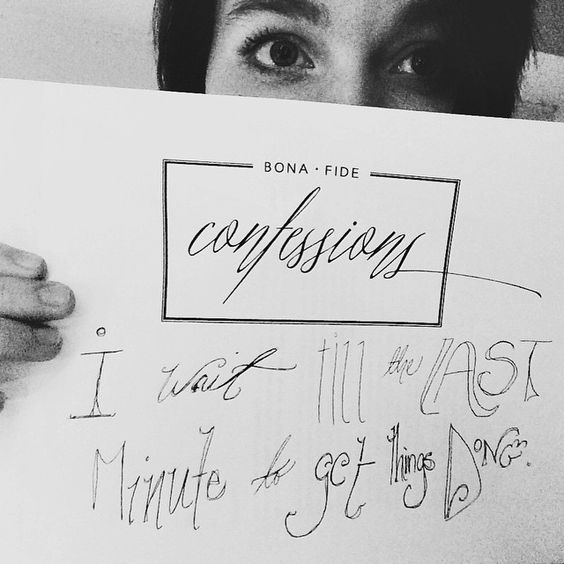 BONA · FIDE
confessions
i wait till the LAST
Minute to get things DONE.